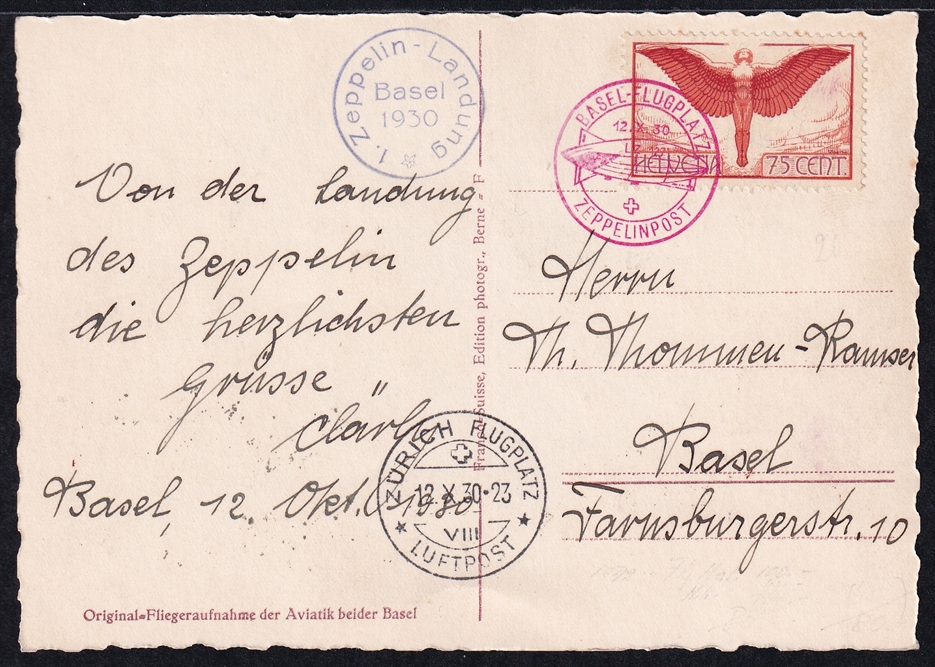 1. Zeppelin-Landung
Basel
1930
Von der Landung
des Zeppelin
die herzlichsten
Grüsse
Basel, 12. Okt. 1930.
Original=Fliegeraufnahme der Aviatik beider Basel
Suisse, Edition photogr., Berne
ZÜRICH FLUGPLATZ
12.X.30·23
VIII
LUFTPOST
BASEL-FLUGPLATZ
12.X.30
ZEPPELINPOST
HELVETIA
75 CENT.
Herrn
Th. Thommen-Ramser
Basel
Farnsburgerstr. 10